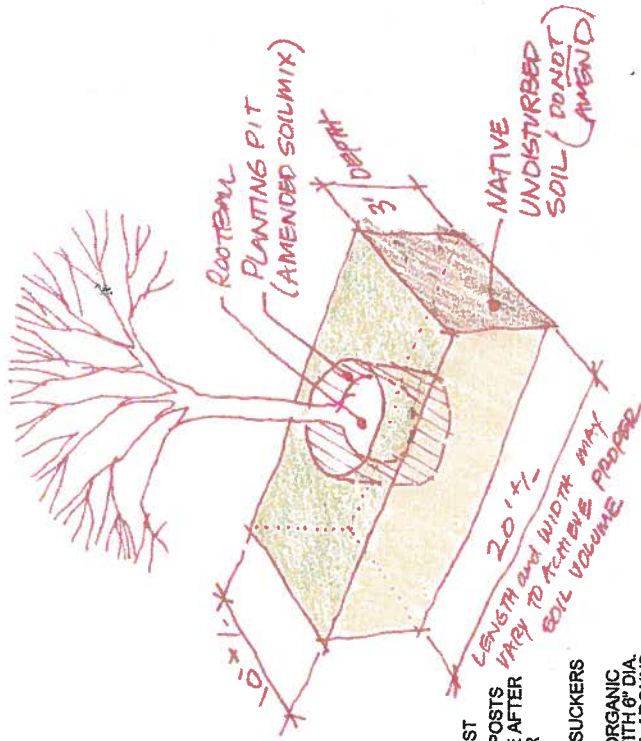 ROOTBALL
PLANTING PIT
(AMENDED SOIL MIX)
DEPTH
3'
NATIVE
UNDISTURBED
SOIL (DO NOT
AMEND)
20' +/-
LENGTH and WIDTH MAY
VARY TO ACHIEVE PROPER
SOIL VOLUME
ST
POSTS
E AFTER
R
SUCKERS
ORGANIC
ITH 6" DIA.